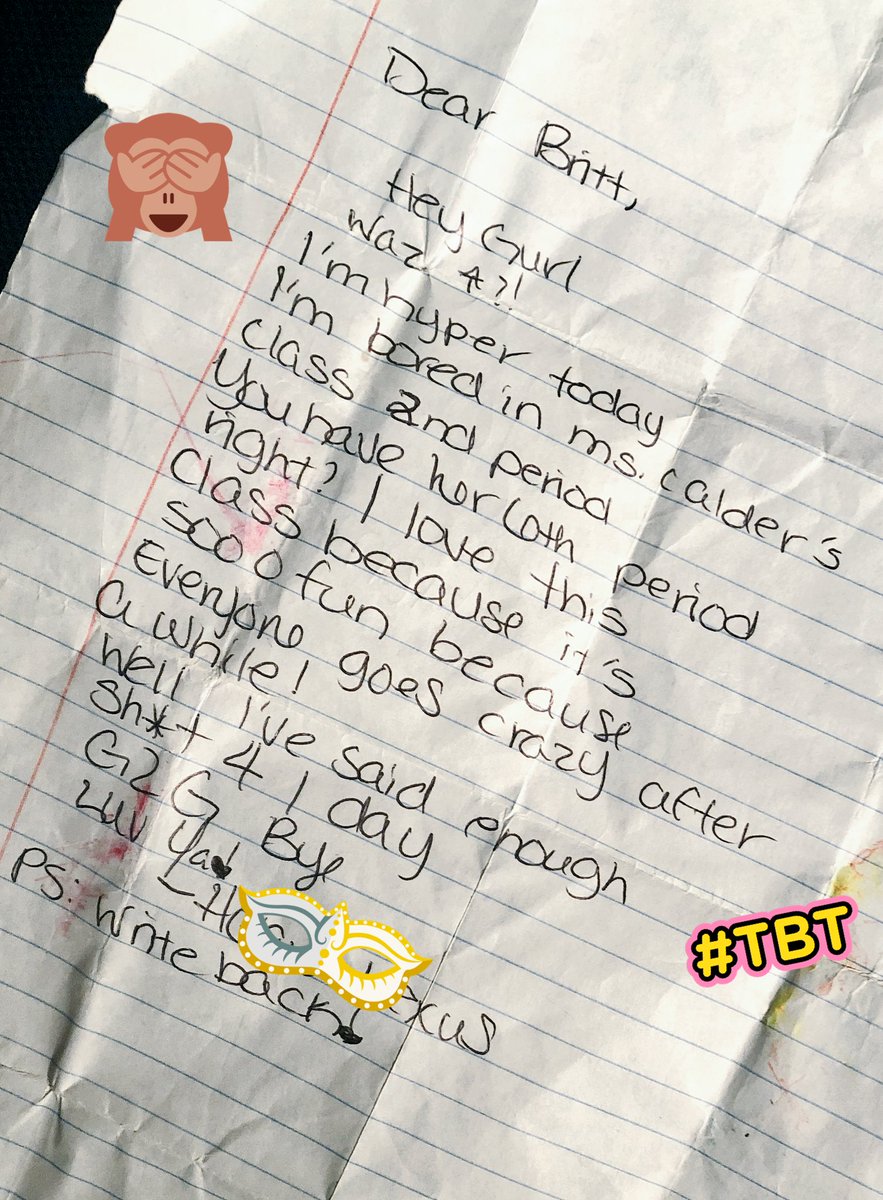 Dear Britt,
Hey Gurl
Waz
I'm hyper today
I'm bored in ms. calder's
class 2nd period
You have her 6th period
right? I love this
class because it's
sooo fun because
Everyone goes crazy after
a while!
Well I've said enough
Sh*t 4 1 day
G2G Bye
Luv Ya!
PS: Write back!
#TBT